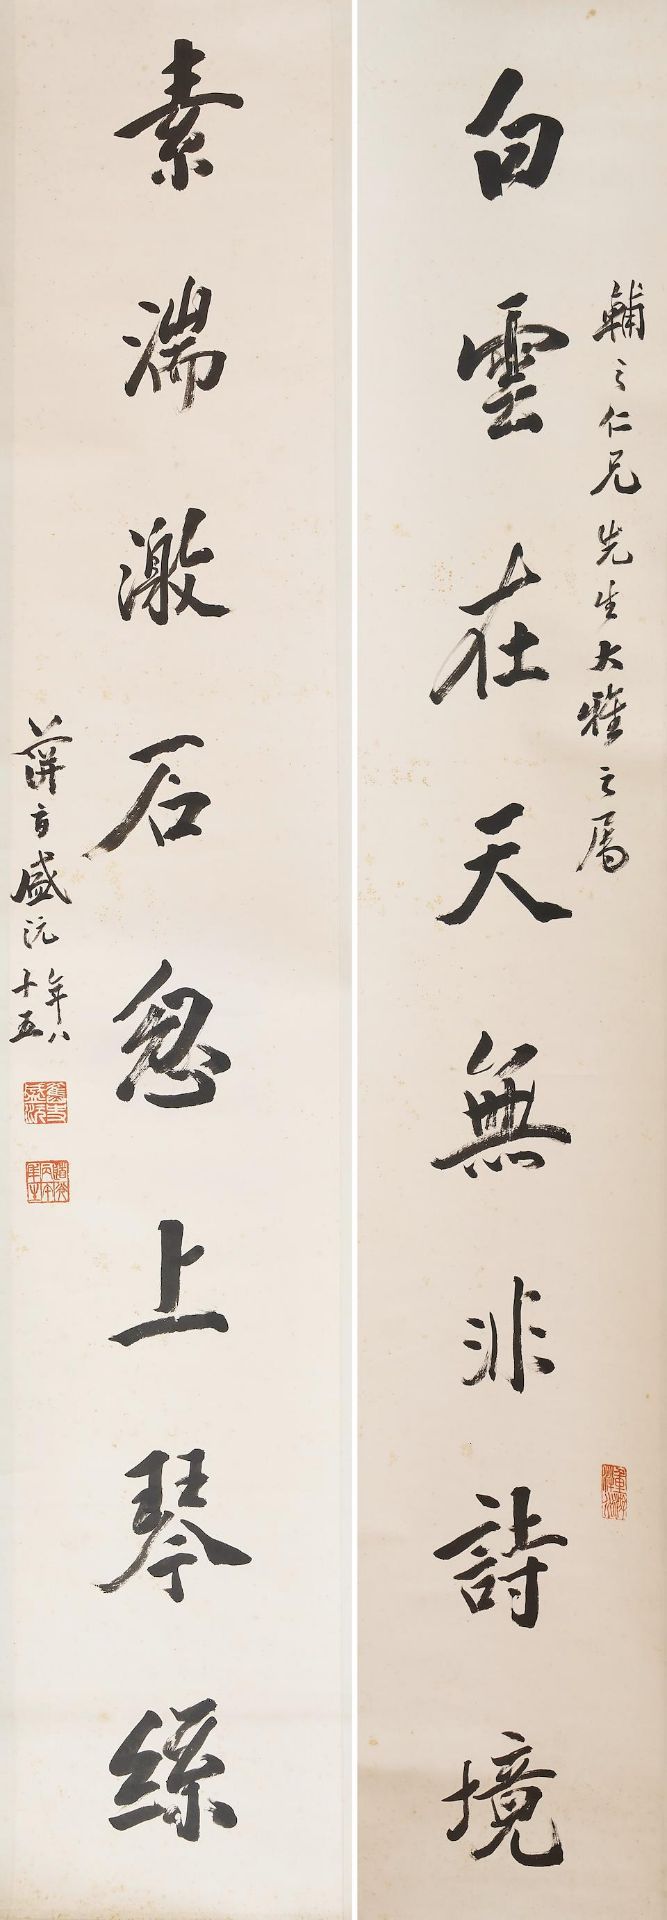 輔之仁兄先生大雅之屬
白雲在天無非詩境
素湍激石忽上琴絲
蓱旨盛沅年八十五